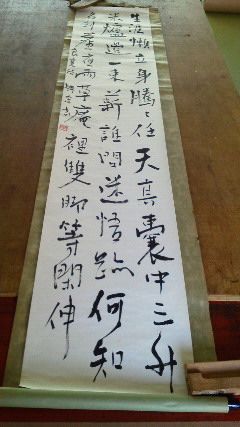 生涯懶立身騰々任天真嚢中三升
米爐邊一束薪誰問迷悟跡何知
名利塵夜雨草庵裡雙脚等閑伸